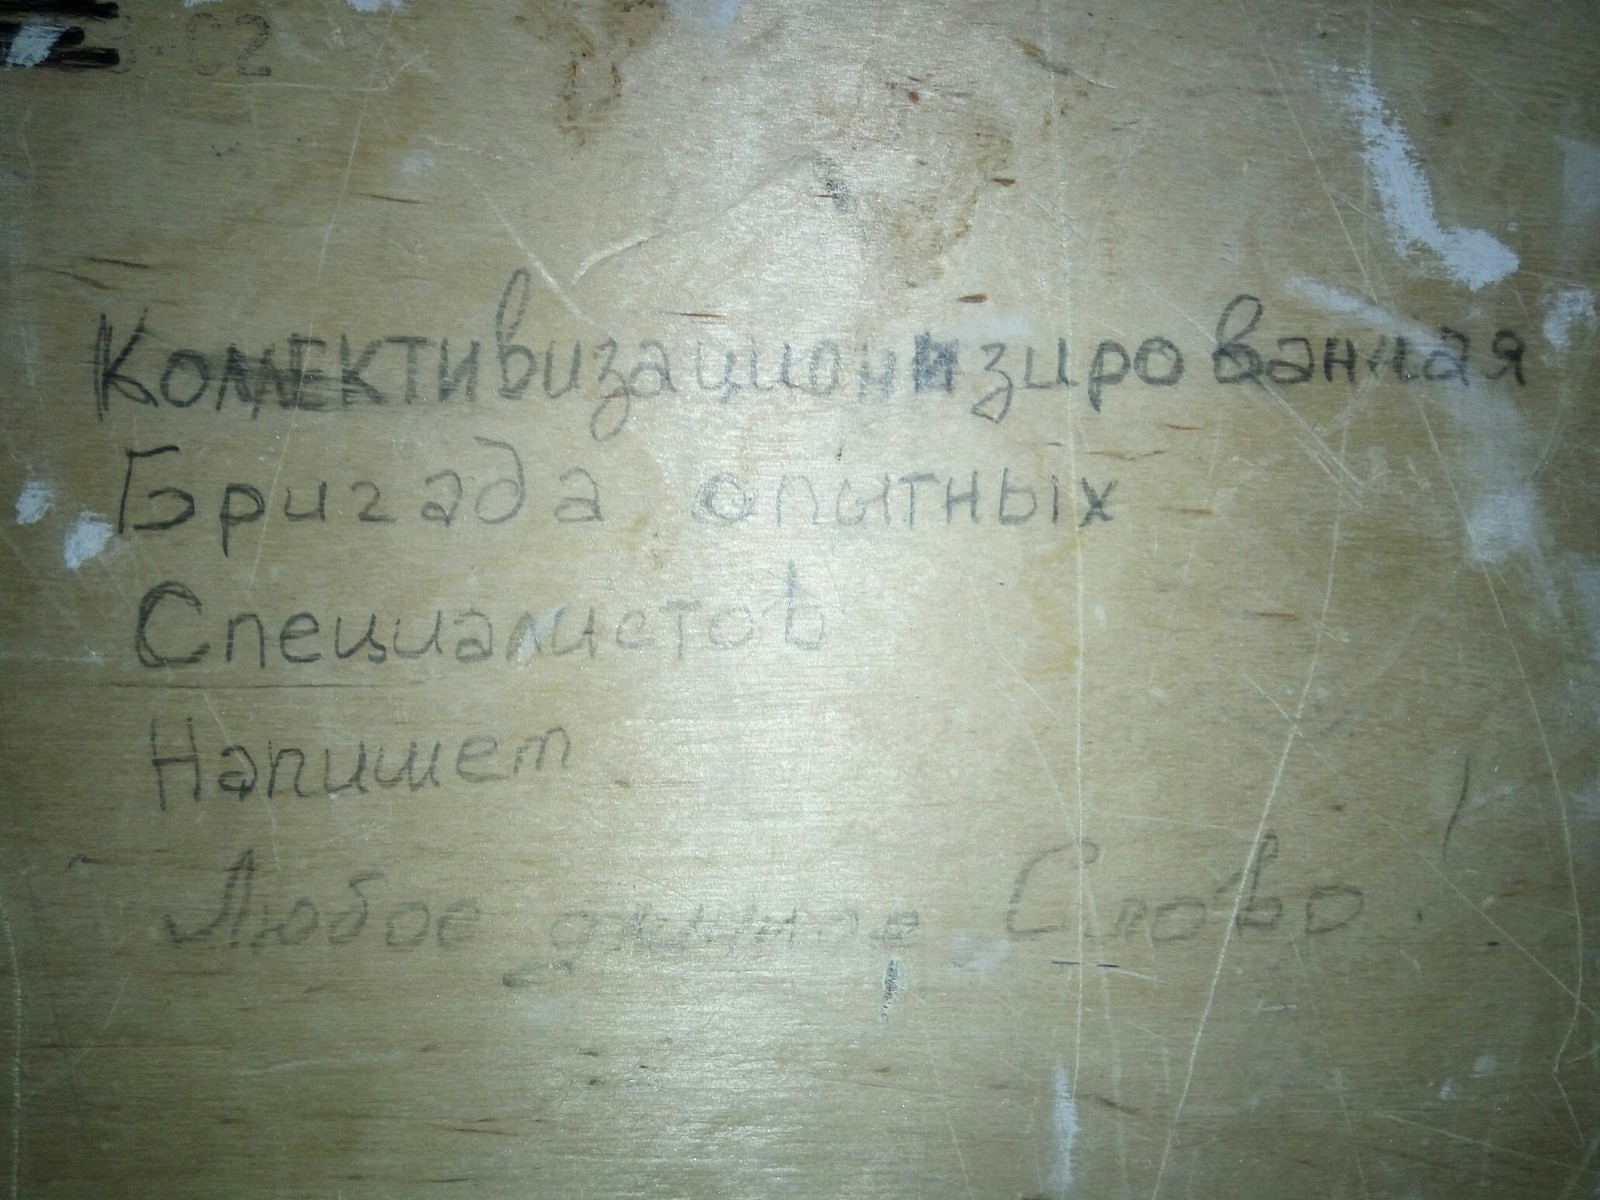 -02
Коллективизационизированная
Бригада опытных
Специалистов
Напишет
Любое длинное Слово!